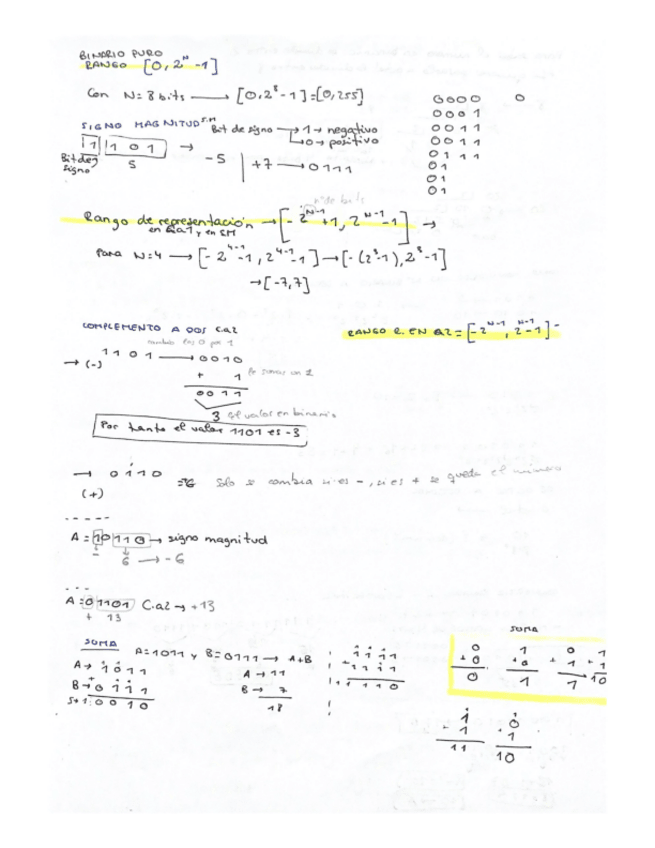 BINARIO PURO
RANGO [0, 2^N -1]
Con N=8 bits → [0, 2^8 -1] = [0, 255]
0000 0
0001
0011
0011
01 11
01
01
01
SIGNO MAGNITUD S.M
Bit de signo → 1 → negativo
→ 0 → positivo
1 1 0 1 → -5 | +7 → 0111
Bit de signo 5
nº de bits
Rango de representación → [-2^N-1 +1, 2^N-1 -1] →
en Ca1 y en SM
Para N=4 → [-2^4-1 -1, 2^4-1 -1] → [-(2^3 -1), 2^3 -1]
→ [-7,7]
COMPLEMENTO A DOS Ca2
RANGO R. EN Ca2 = [-2^N-1, 2^N-1 -1]
cambio los 0 por 1
→ 1101 → 0010
(-)
+ 1 le sumas un 1
0011
3 el valor en binario
Por tanto el valor 1101 es -3
→ 0110 = 6 Solo se cambia si es -, si es + se queda el número
(+)
A = 10110 → signo magnitud
- 6 → -6
A = 01101 Ca2 → +13
+ 13
SUMA A=1011 y B=0111 → A+B
A → 1011
B → 0111
S+1:0010
A → 11
B → 7
18
1111
+ 1111
1 1 1 1 0
SUMA
0 1 0 1
+0 +0 +1 +1
0 1 1 10
1 0
+ 1 + 1
11 10